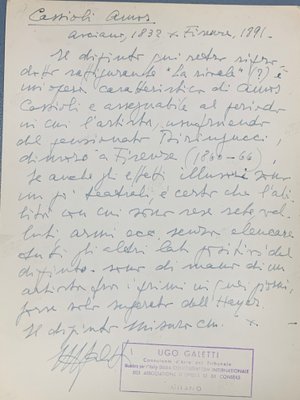 Cassioli Amos
Asciano, 1832 + Firenze, 1891.
Il dipinto qui retro ripro
dotto raffigurante "La rivale" (?) è
un'opera caratteristica di Amos
Cassioli e assegnabile al periodo
in cui l'artista, usufruendo
del pensionato Biringucci,
dimorò a Firenze (1860-66).
Se anche gli effetti illusivi sono
un po' teatrali, è certo che l'abi
lità con cui sono rese sete, vel
luti armi ecc. senza elencare
tutti gli altri lati positivi del
dipinto sono di mano di un
artista fra i primi in quei,
forse solo superato dall'Hayez.
Il dipinto misura cm. x.
UGO GALETTI
Consulente d'Arte del Tribunale
DES ASSOCIATIONS D'EXPERTS ET DE CONSEILS
MILANO